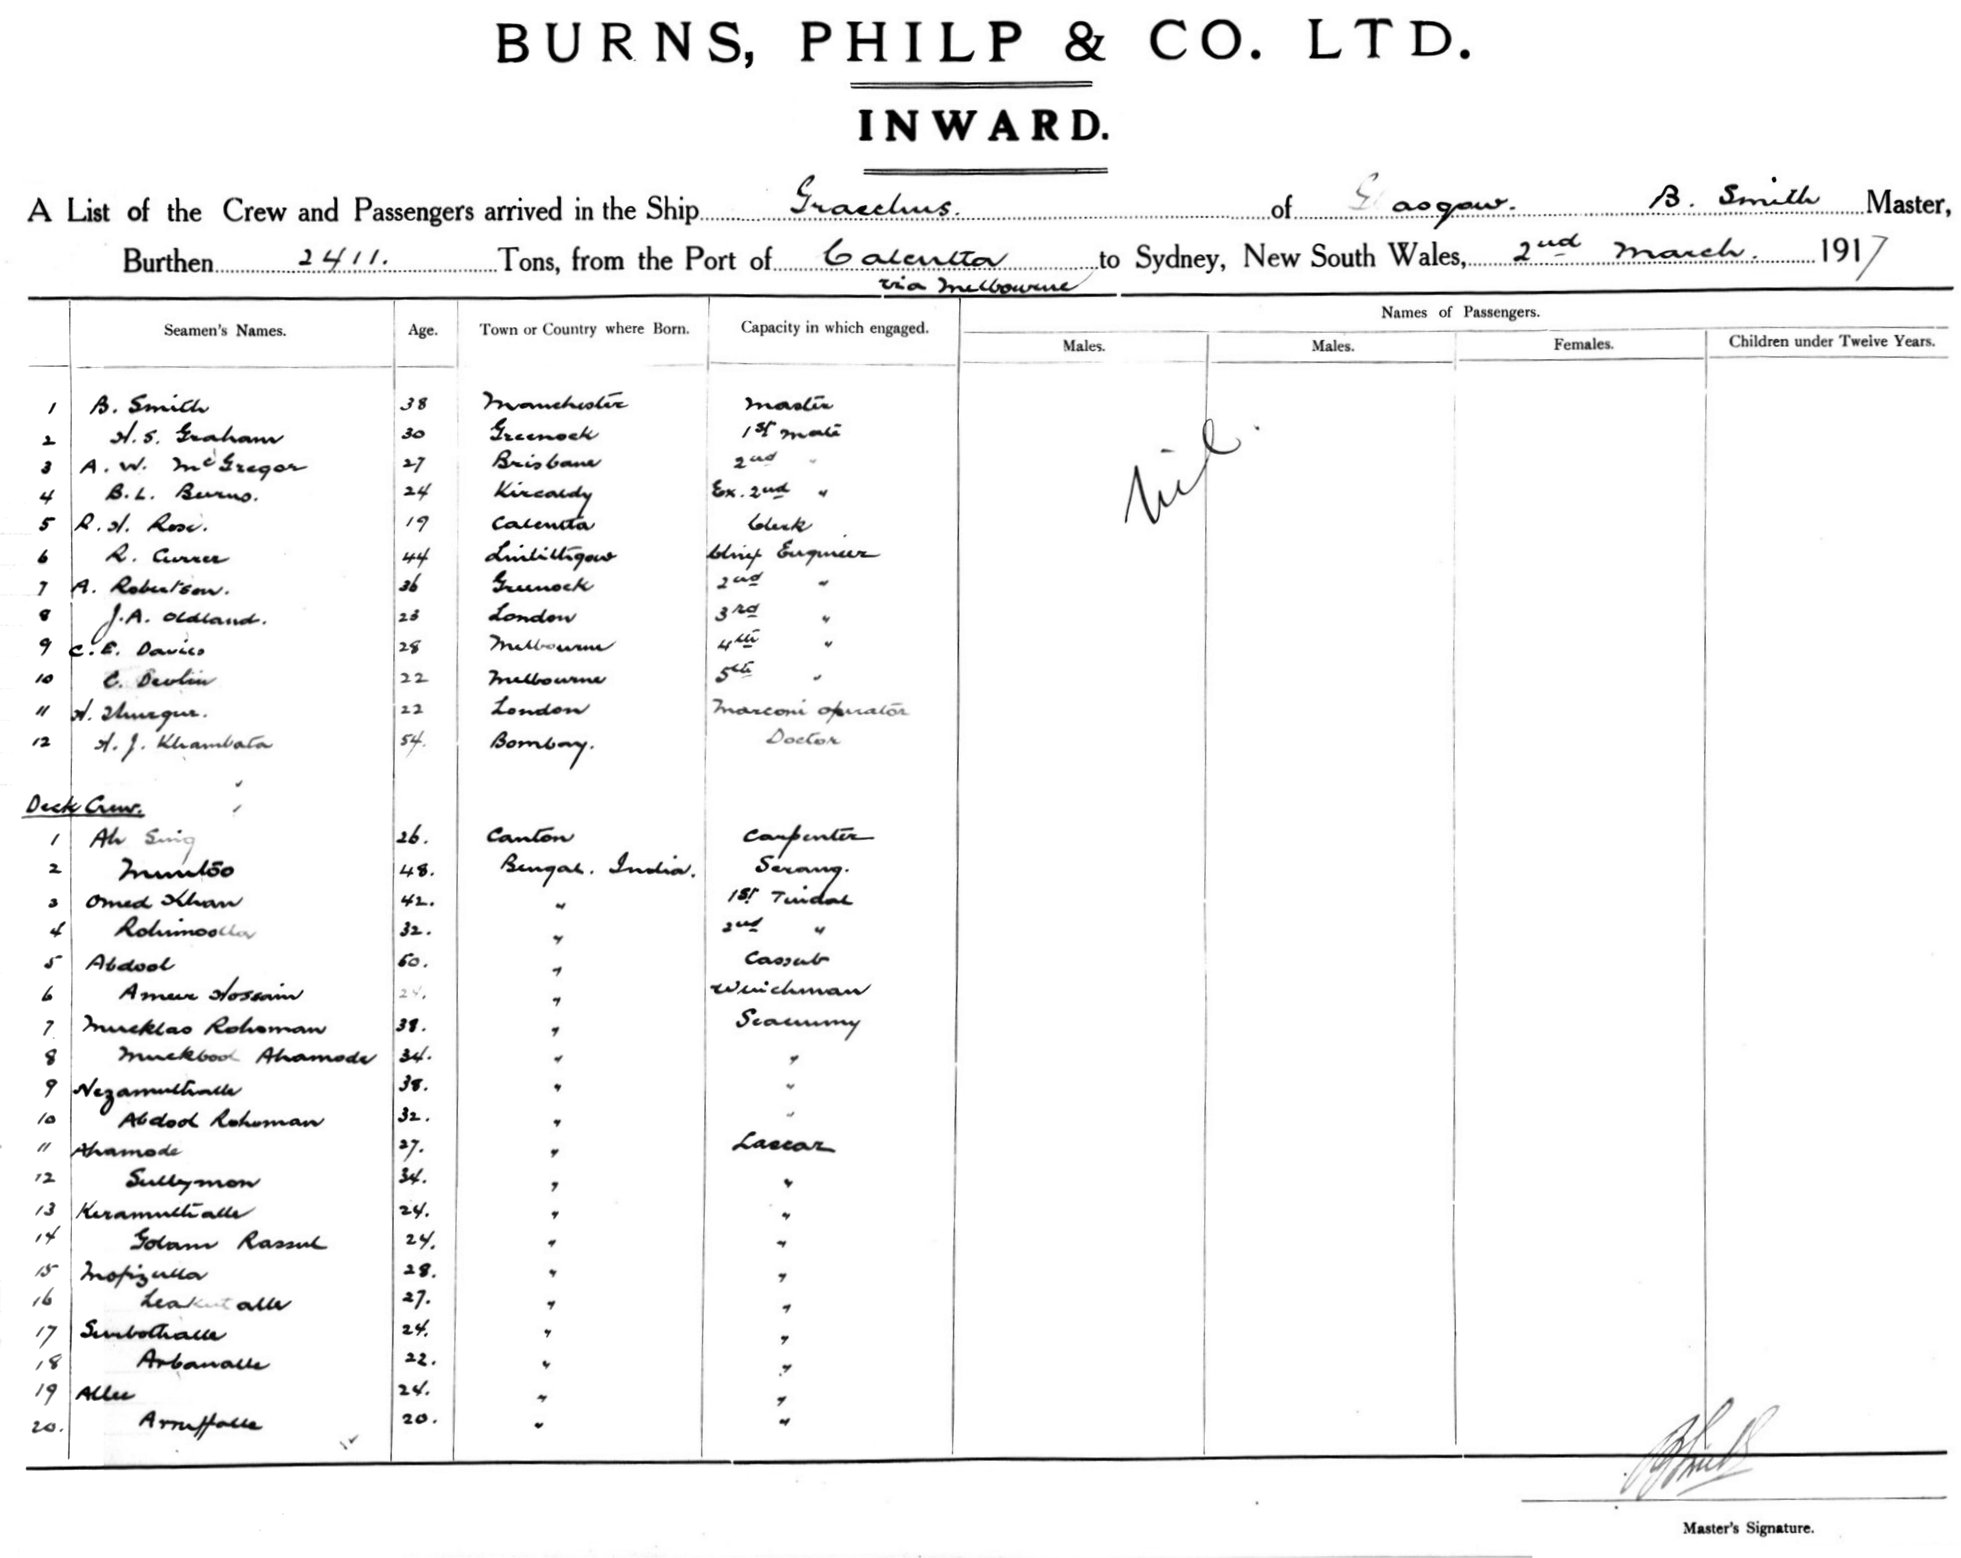 BURNS, PHILP & CO. LTD.
INWARD.
A List of the Crew and Passengers arrived in the Ship Gracchus. of Glasgow. B. Smith Master,
Burthen 2411. Tons, from the Port of Calcutta to Sydney, New South Wales, 2nd March. 1917
via Melbourne
Names of Passengers.
Seamen's Names. Age. Town or Country where Born. Capacity in which engaged.
Males. Males. Females. Children under Twelve Years.
1 B. Smith 38 Manchester Master
2 H.S. Graham 30 Greenock 1st Mate
3 A. W. McGregor 27 Brisbane 2nd "
4 B.L. Burns. 24 Kircaldy Ex. 2nd "
Nil.
5 R.H. Rose. 19 Calcutta Clerk
6 R. Currer 44 Linlithgow Chief Engineer
7 A. Robertson. 36 Greenock 2nd "
8 J.A. Oldland. 23 London 3rd "
9 C.E. Davies 28 Melbourne 4th "
10 C. Devlin 22 Melbourne 5th "
11 H. 22 London Marconi Operator
12 H.J. Khambata 54. Bombay. Doctor
Deck Crew.
1 Ah Sing 26. Canton Carpenter
2 48. Bengal. India. Serang.
3 Omed Khan 42. " 1st Tindal
4 Rohimoolla 32. " 2nd "
5 Abdool 60. " Cassub
6 Ameer Hossain 24. " Winchman
7 Rohoman 38. " Seacunny
8 Muckbool Ahamode 34. " "
9 Nezamuthalle 38. " "
10 Abdool Rohoman 32. " "
11 Ahamode 27. " Lascar
12 Sullymon 34. " "
13 Keramuttialle 24. " "
14 Golam Rassul 24. " "
15 Mofizulla 28. " "
16 Leakutalle 27. " "
17 Surbothalle 24. " "
18 Arbanalle 22. " "
19 Allee 24. " "
20. 20. " "
B Smith
Master's Signature.